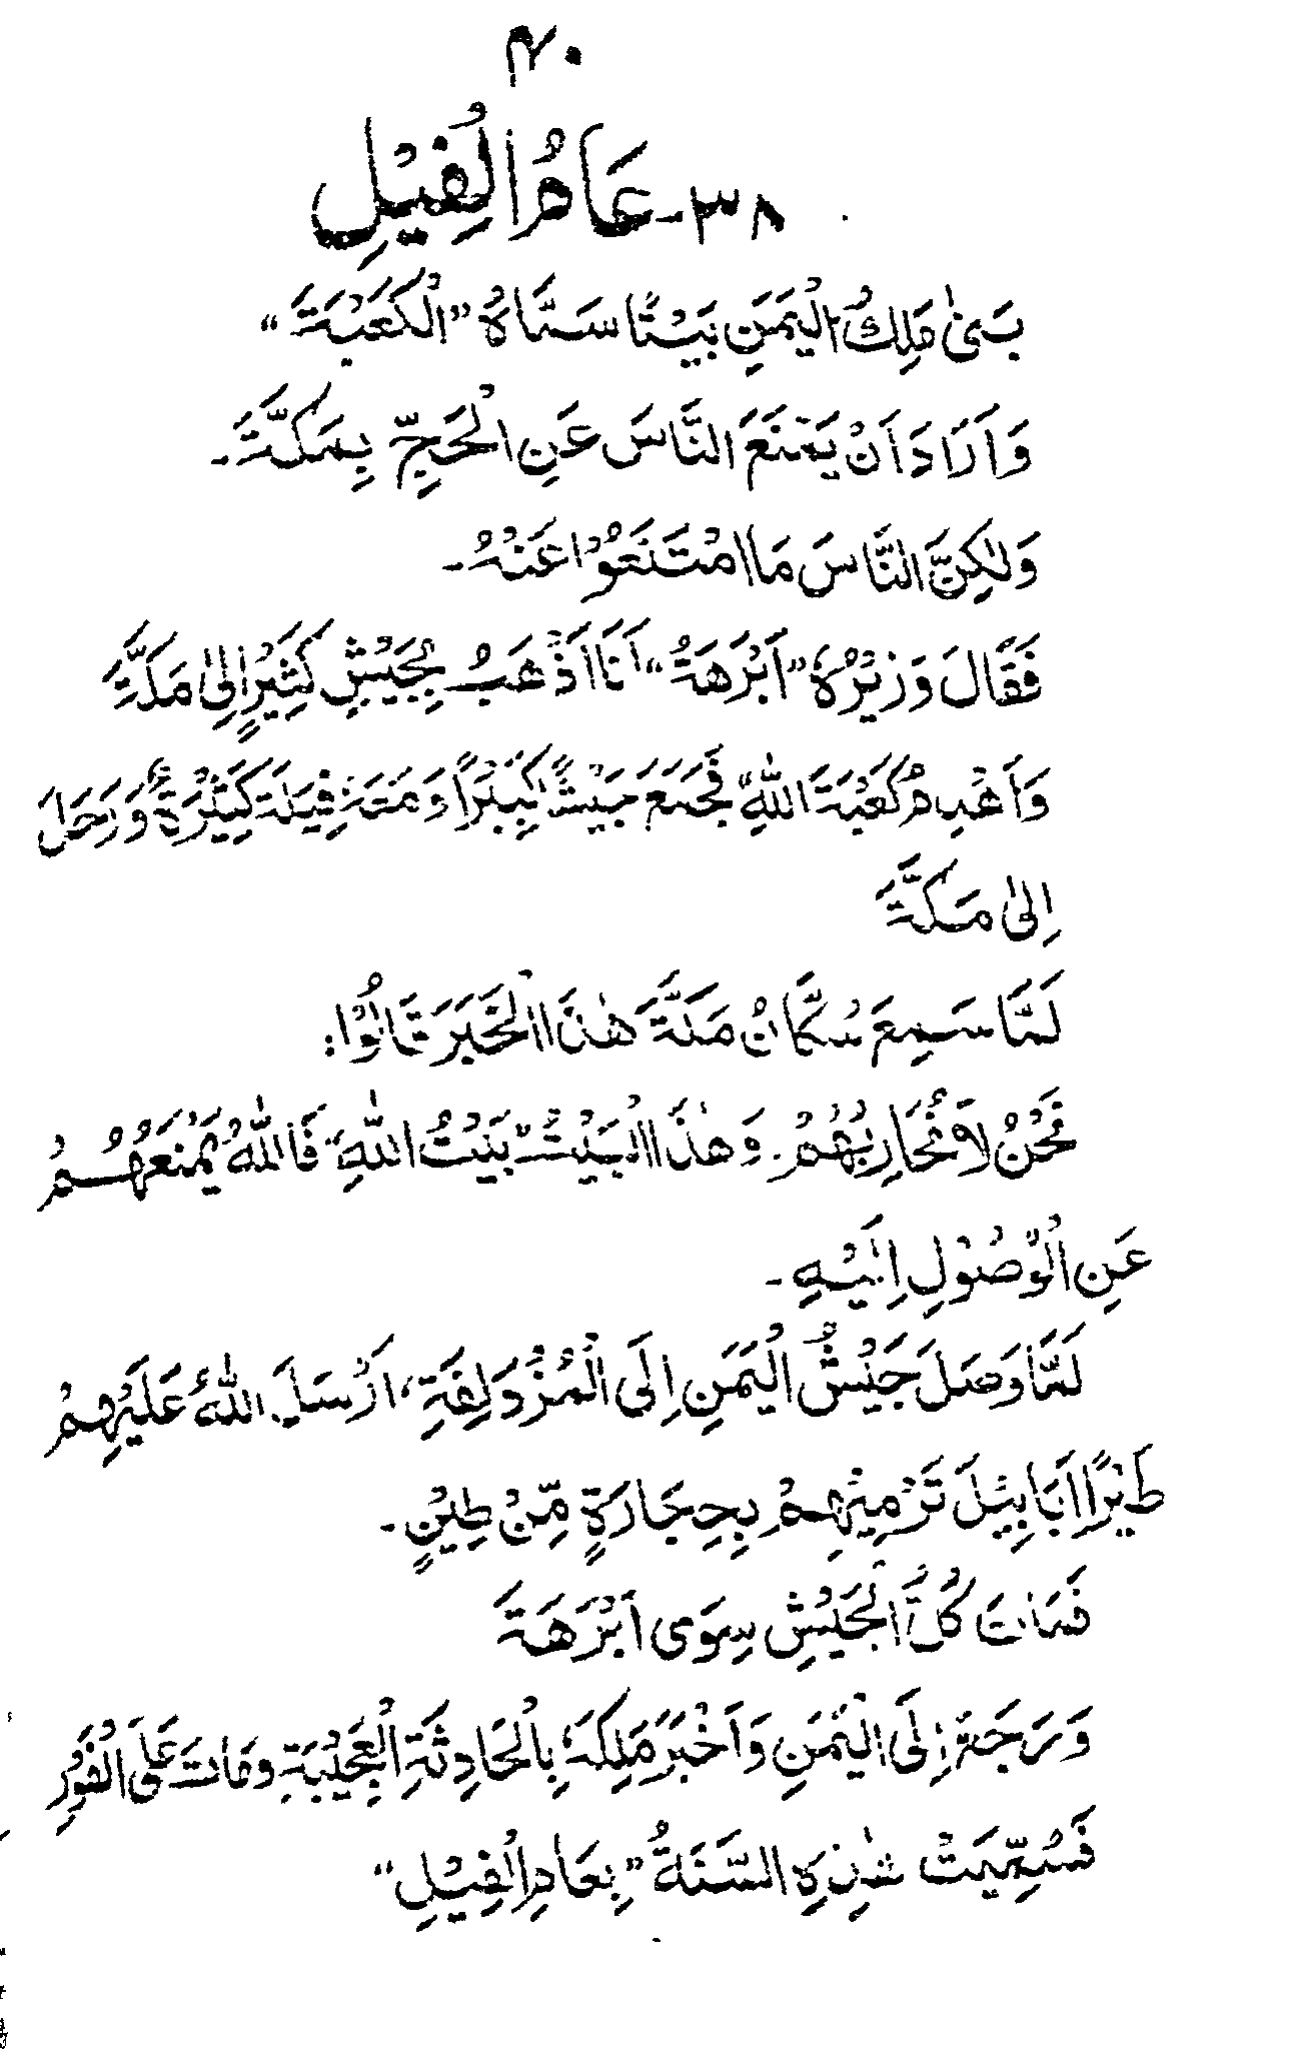 ۴۰
۳۸ - عَامُ الْفِيْلِ
بَنىٰ مَلِكُ الْيَمَنِ بَيْتًا سَمَّاهُ "الْكَعْبَةَ"
وَاَرَادَ اَنْ يَمْنَعَ النَّاسَ عَنِ الْحَجِّ بِمَكَّةَ۔
وَلٰكِنَّ النَّاسَ مَا امْتَنَعُوْا عَنْهُ۔
فَقَالَ وَزِيْرُهُ "اَبْرَهَةُ" اَنَا اَذْهَبُ بِجَيْشٍ كَثِيْرٍ اِلىٰ مَكَّةَ
وَاَهْدِمُ كَعْبَةَ اللّٰهِ فَجَمَعَ جَيْشًا كَبِيْرًا وَمَعَهٗ فِيَلَة كَثِيْرَةٌ وَرَحَلَ
اِلىٰ مَكَّةَ
لَمَّا سَمِعَ سُكَّانُ مَكَّةَ هٰذَا الْخَبَرَ قَالُوْا:
نَحْنُ لَا نُحَارِبُهُمْ. وَهٰذَا الْبَيْتُ بَيْتُ اللّٰهِ فَاللّٰهُ يَمْنَعُهُمْ
عَنِ الْوُصُوْلِ اِلَيْهِ۔
لَمَّا وَصَلَ جَيْشُ الْيَمَنِ اِلَى الْمُزْدَلِفَةِ، اَرْسَلَ اللّٰهُ عَلَيْهِمْ
طَيْرًا اَبَابِيْلَ تَرْمِيْهِمْ بِحِجَارَةٍ مِّنْ طِيْنٍ۔
فَمَاتَ كُلُّ الْجَيْشِ سِوَى اَبْرَهَةَ
وَرَجَعَ اِلَى الْيَمَنِ وَاَخْبَرَ مَلِكَهٗ بِالْحَادِثَةِ الْعَجِيْبَةِ وَمَاتَ عَلَى الْفَوْرِ
فَسُمِّيَتْ هٰذِهِ السَّنَةُ "بِعَامِ الْفِيْلِ"